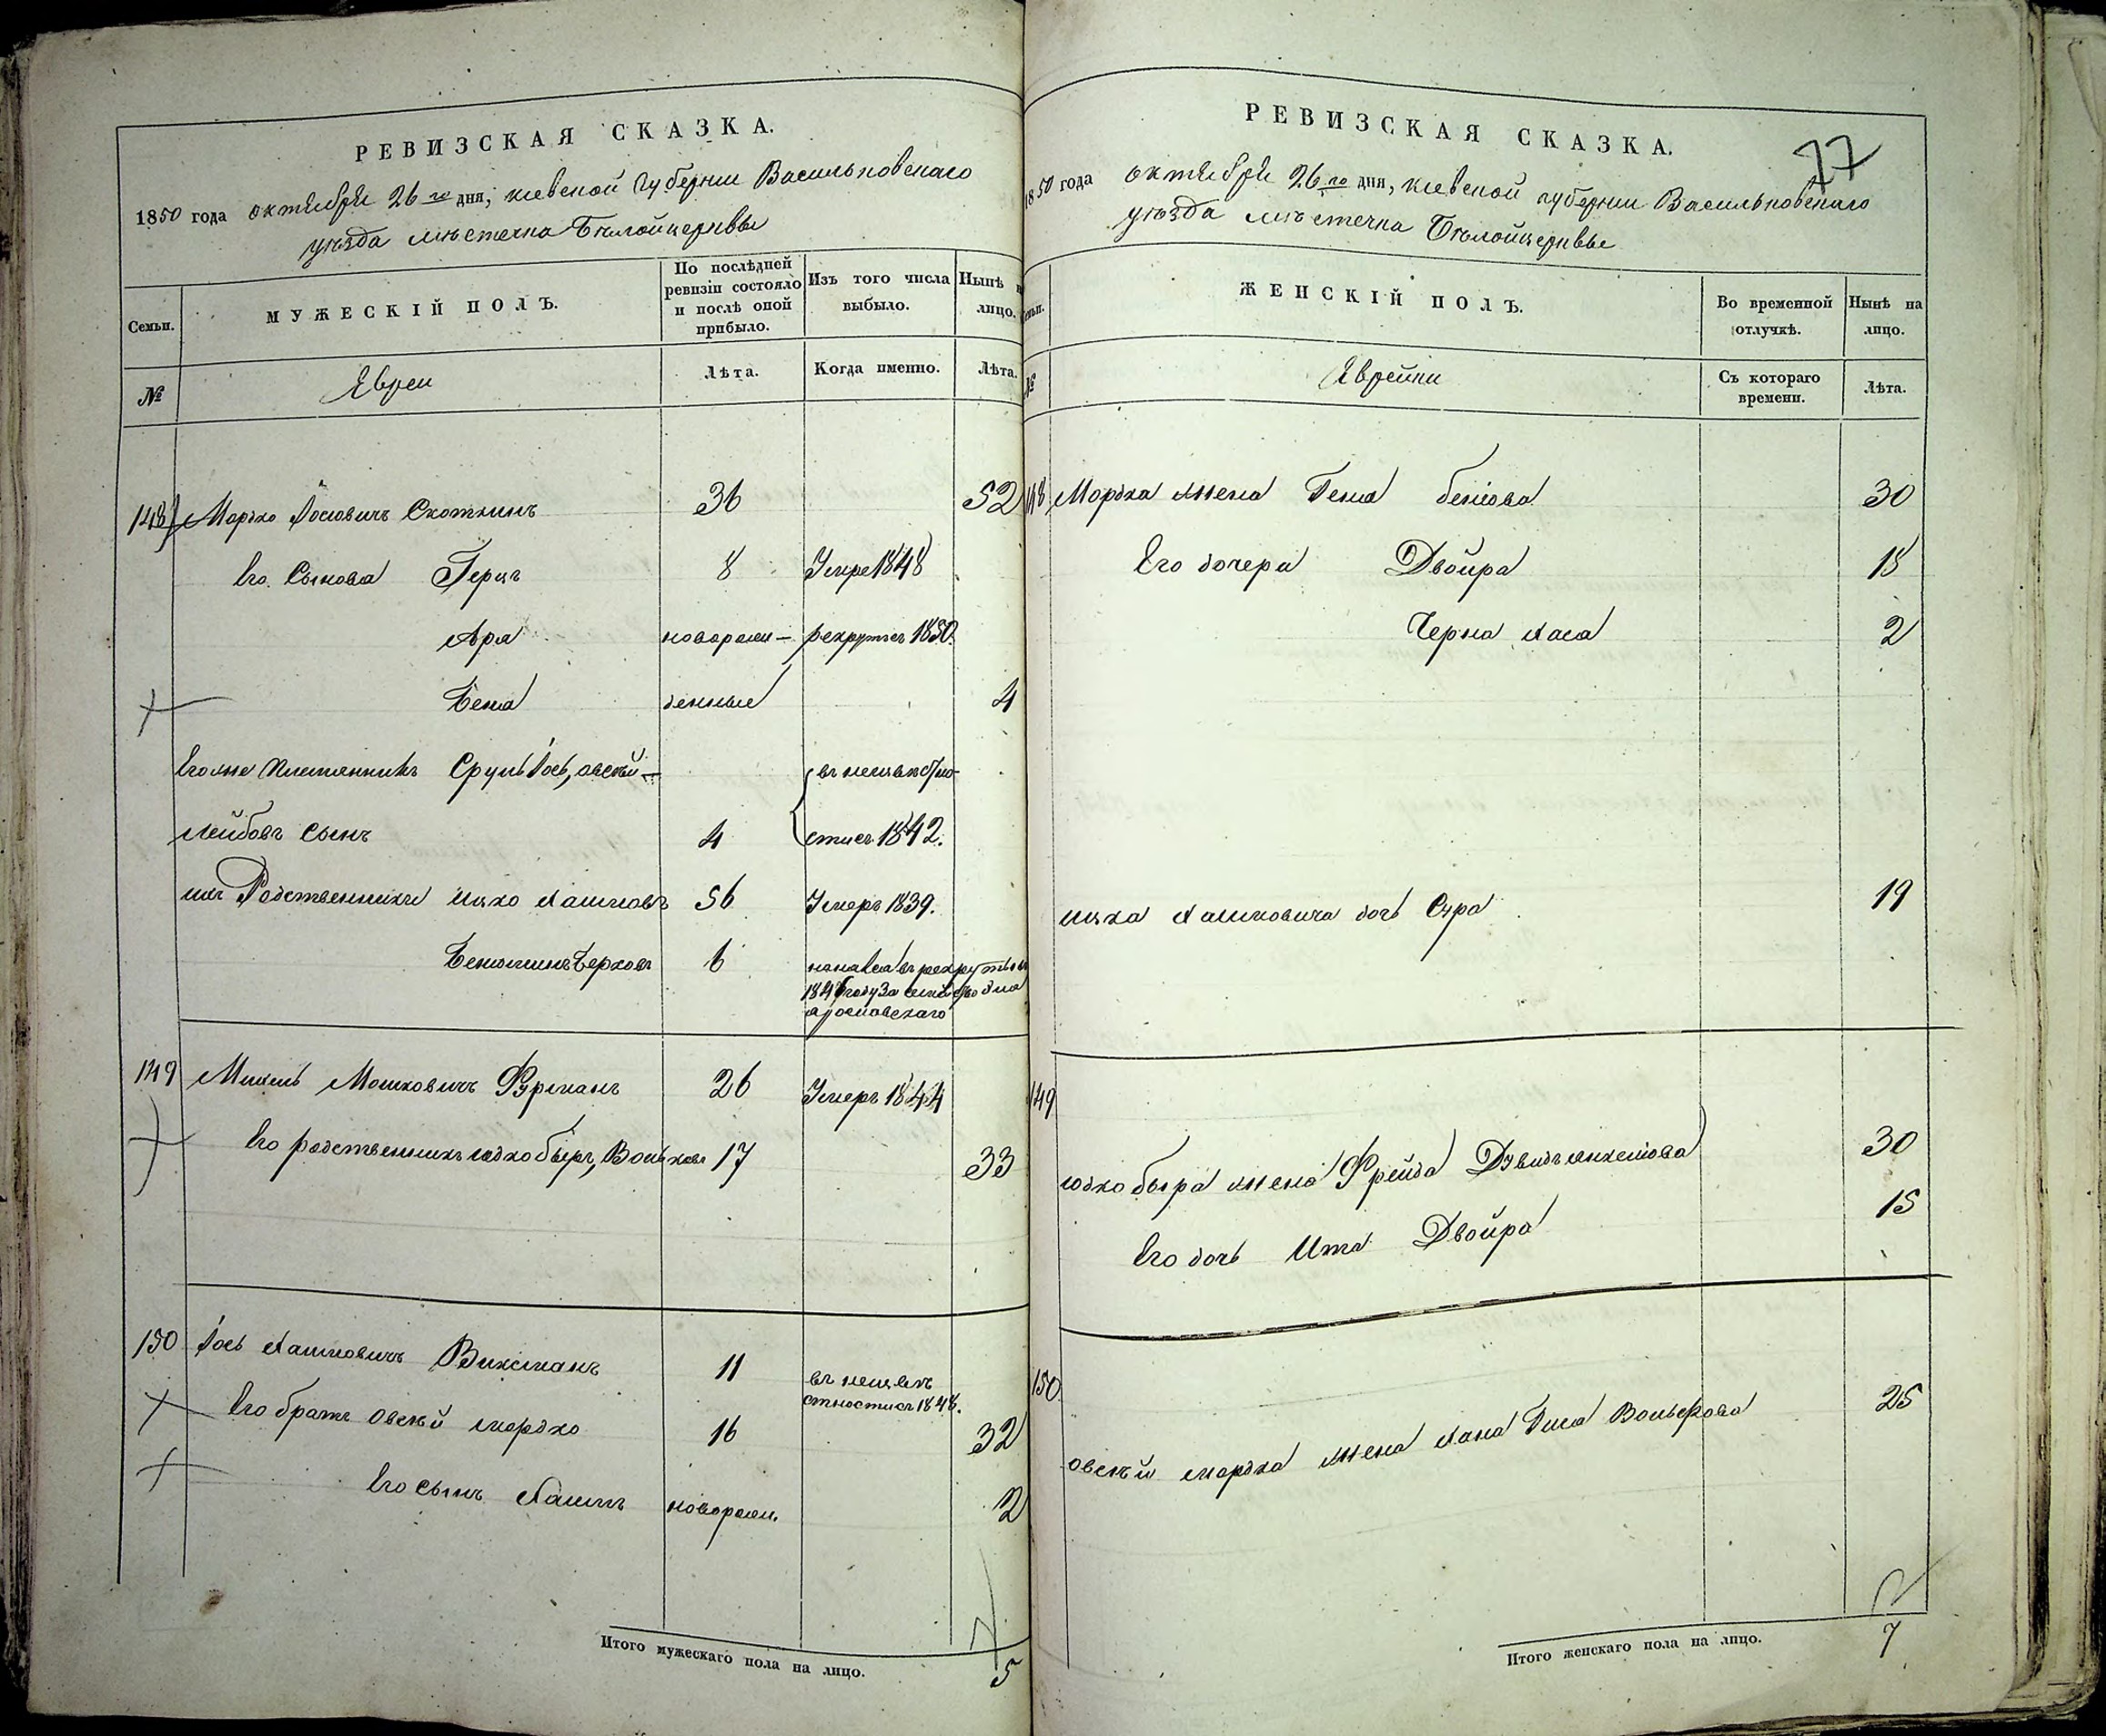 РЕВИЗСКАЯ СКАЗКА.
1850 года октября 26 го дня, кіевской губерніи Васильковскаго
уѣзда мѣстечка Бѣлойцеркви
Семьи.
МУЖЕСКІЙ ПОЛЪ.
По послѣдней ревизіи состояло и послѣ оной прибыло.
Изъ того числа выбыло.
Нынѣ на лицо.
№
Евреи
Лѣта.
Когда именно.
Лѣта.
148 Мордко Іосіовичъ Скоткинъ 36 52
Его Сынова Герцъ 8 Умре 1848
Ара новорож- рекрутъ съ 1850.
Беня денные 4
Его же Племянникъ Сруль Іось, овсѣй- въ неизвѣстно-
лейбовъ сынъ 4 сти съ 1842.
ихъ Родственники ицко Хаимовъ 56 Умеръ 1839.
Беньяминъ Берковъ 6
149 Михель Мошковичъ Фурманъ 26 Умеръ 1844
Его родственникъ юдко бѣръ, Вольковъ 17 33
150 Іось Хаимовичъ Виксманъ 11 въ неизвѣстности съ 1848.
Его братъ овсѣй мордко 16 32
Его сынъ Хаимъ новорож. 2
Итого мужескаго пола на лицо. 5
РЕВИЗСКАЯ СКАЗКА.
77
1850 года октября 26 го дня, кіевской губерніи Васильковскаго
уѣзда мѣстечка Бѣлойцеркви
Семьи.
ЖЕНСКІЙ ПОЛЪ.
Во временной отлучкѣ.
Нынѣ на лицо.
№
Еврейки
Съ котораго времени.
Лѣта.
148 Мордка жена Геня беніова 30
Его дочера Двойра 18
Черна Хаса 2
ицка Хаимовича дочь Сура 19
149
юдко бера жена Фрейда 30
Его дочь Ита Двойра 15
150
овсѣй мордка жена Хана 25
Итого женскаго пола на лицо. 7